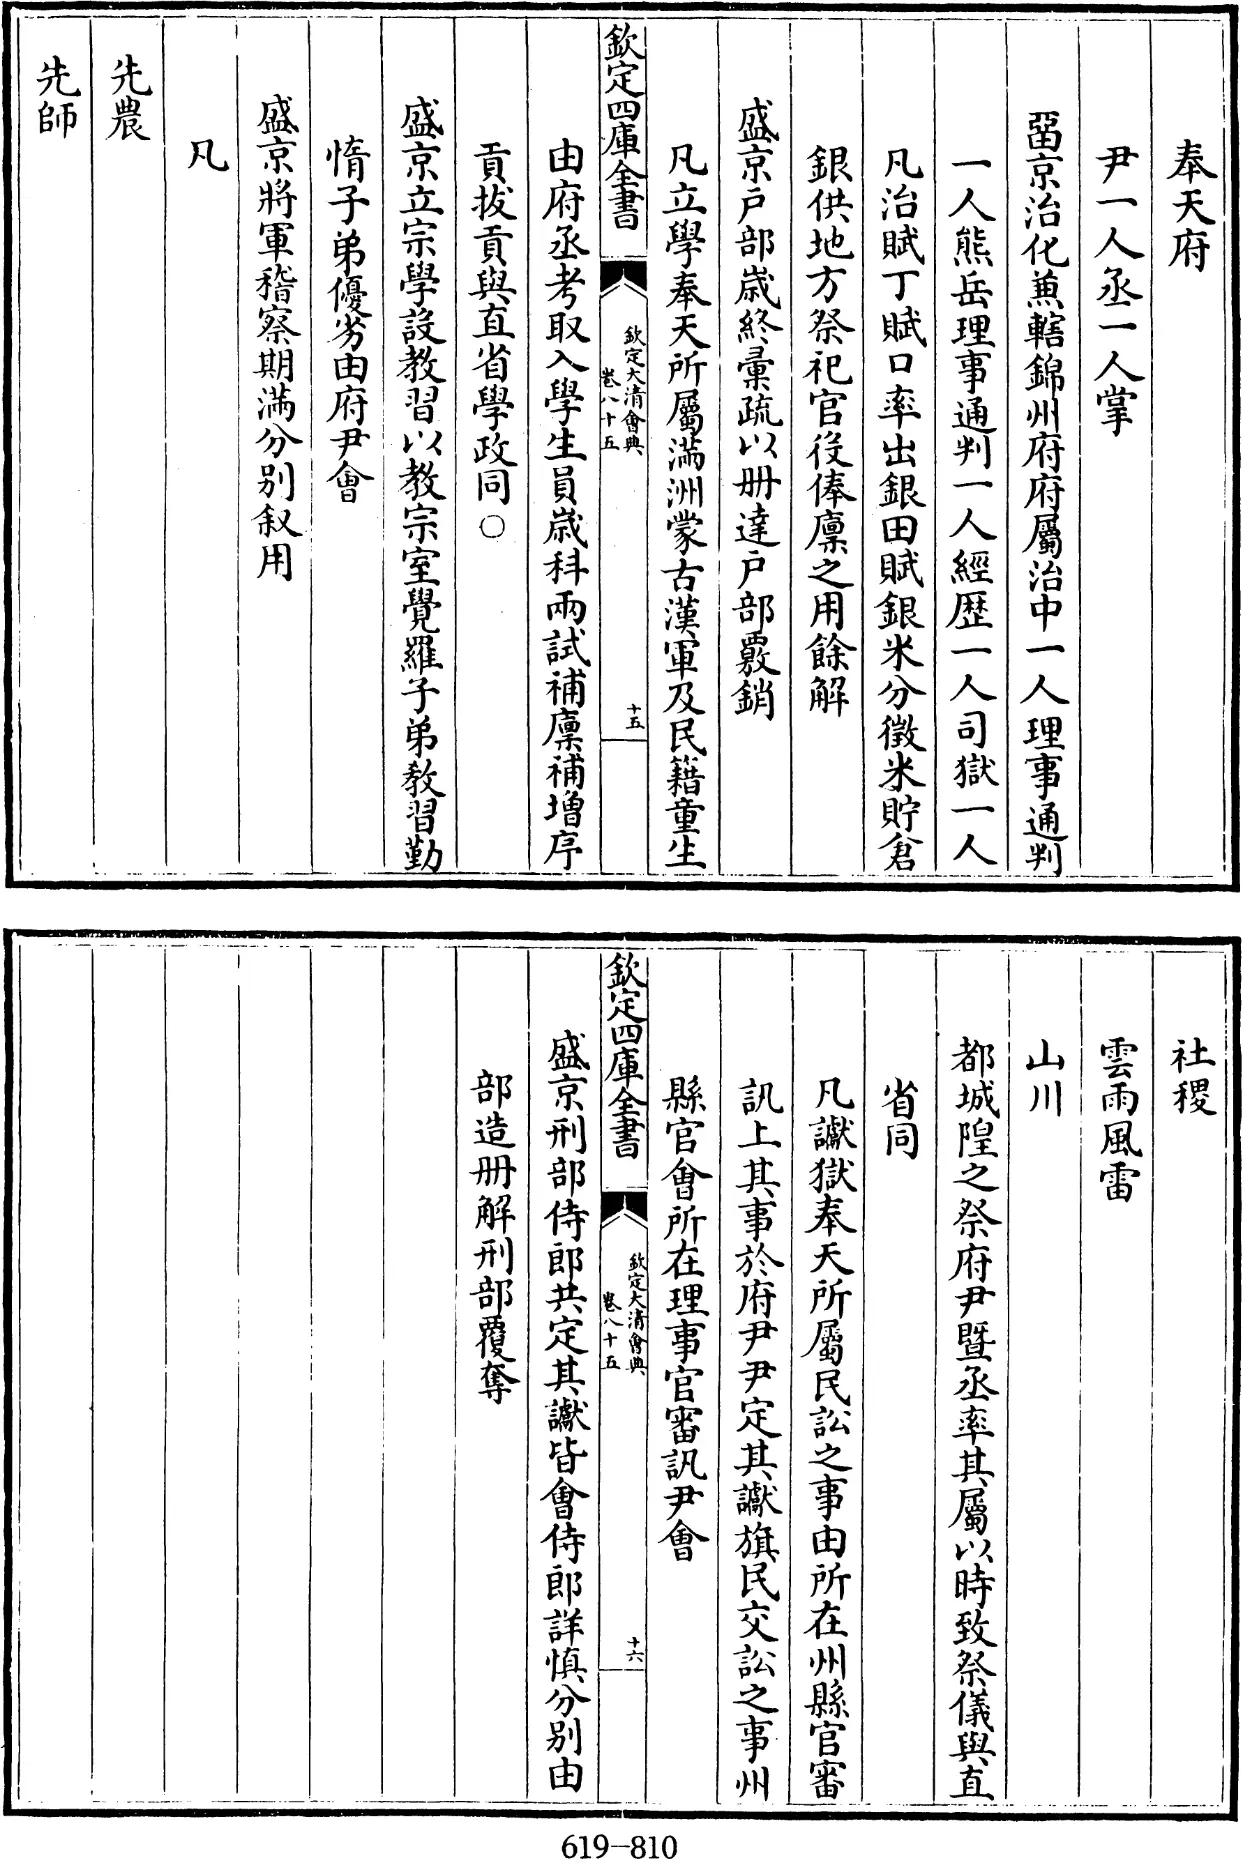 奉天府
尹一人丞一人掌
畱京治化兼轄錦州府府屬治中一人理事通判
一人熊岳理事通判一人經歷一人司獄一人
凡治賦丁賦口率出銀田賦銀米分徵米貯倉
銀供地方祭祀官役俸廪之用餘解
盛京户部嵗終彙疏以册達户部覈銷
凡立學奉天所屬滿洲蒙古漢軍及民籍童生
欽定四庫全書
欽定大清會典
卷八十五
十五
由府丞考取入學生員嵗科兩試補廪補增序
貢拔貢與直省學政同○
盛京立宗學設教習以教宗室覺羅子弟教習勤
惰子弟優劣由府尹會
盛京將軍稽察期滿分别叙用
凡
先農
先師
社稷
雲雨風雷
山川
都城隍之祭府尹暨丞率其屬以時致祭儀與直
省同
凡讞獄奉天所屬民訟之事由所在州縣官審
訊上其事於府尹尹定其讞旗民交訟之事州
縣官會所在理事官審訊尹會
欽定四庫全書
欽定大清會典
卷八十五
十六
盛京刑部侍郎共定其讞皆會侍郎詳慎分别由
部造册解刑部覆奪
619-810